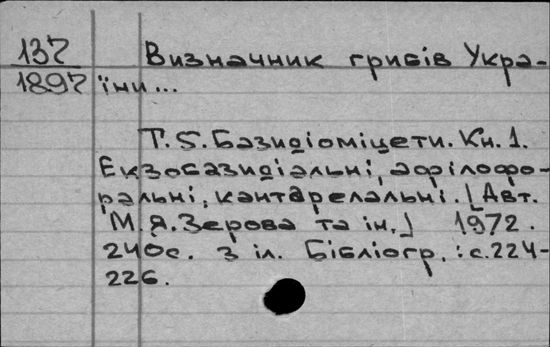 137 Визначник грибів Укра-
1897 їни...
Т. 5. Базидіоміцети. Кн. 1.
Екзобазидіальні, афілофо-
ральні, кантарелальні. [Авт.
М. Я. Зерова та ін.] 1972.
240с. з іл. Бібліогр.: с. 224-
226.